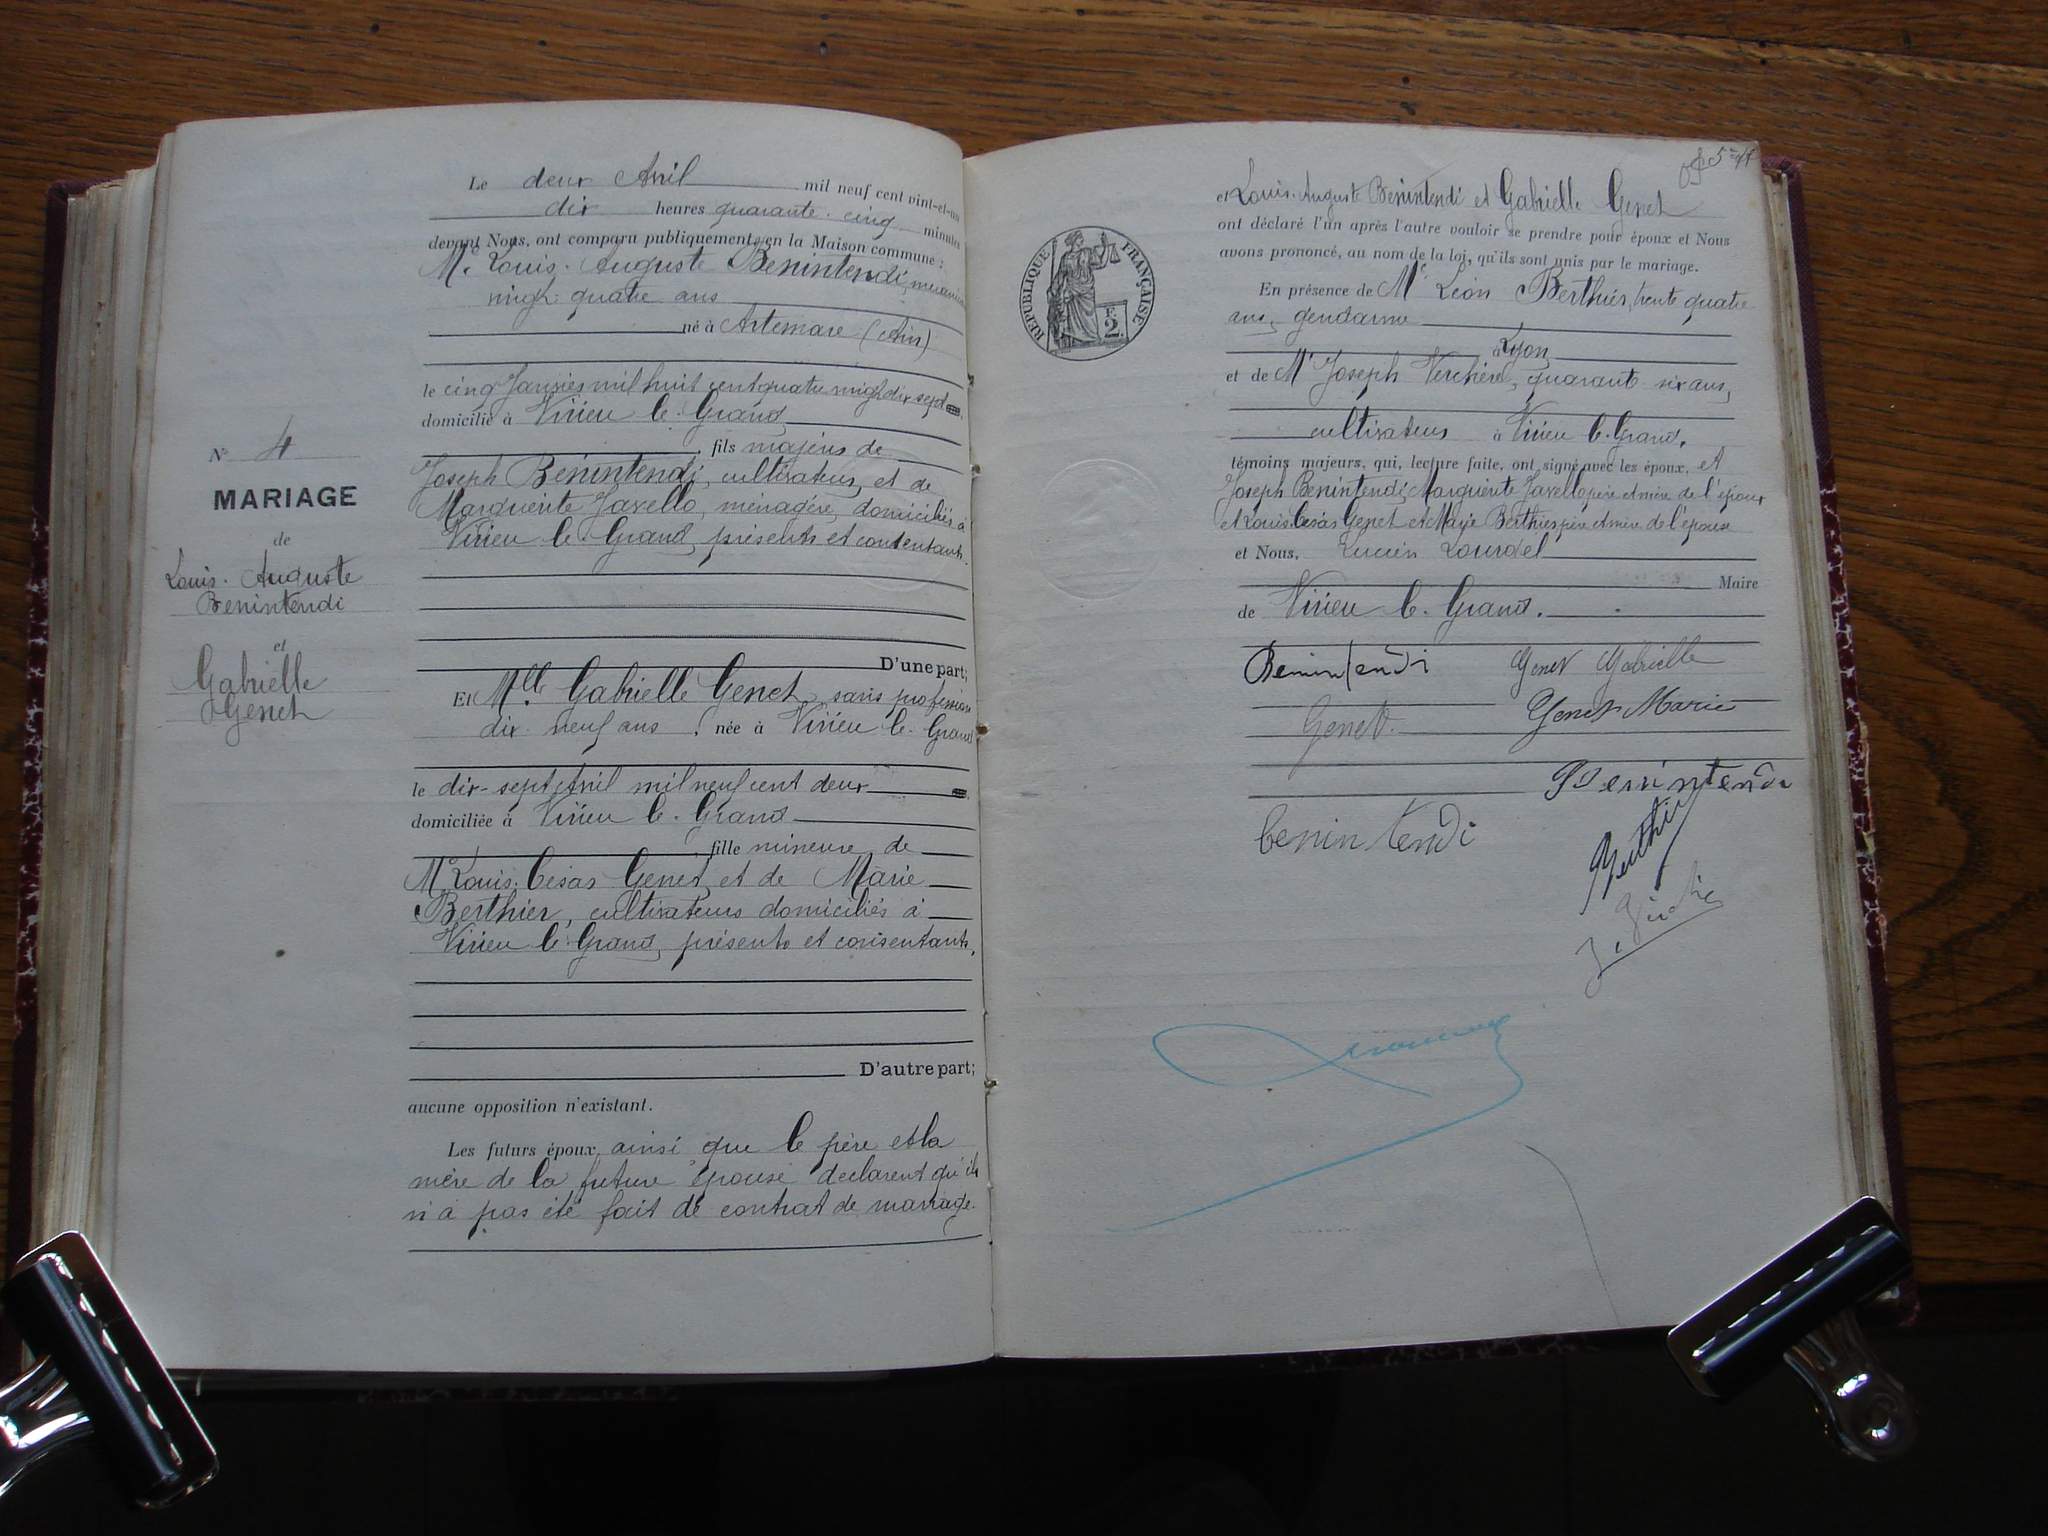 N° 4
MARIAGE
de
Louis-Auguste
Benintendi
et
Gabrielle
Genet
Le deux Avril mil neuf cent vint-et-un
dix heures quarante-cinq minutes
devant Nous, ont comparu publiquement en la Maison commune :
Mr. Louis-Auguste Benintendi,
vingt-quatre ans
né à Artemare (Ain)
le cinq Janvier mil huit cent quatre vingt dix sept
domicilié à Virieu le-Grand
, fils majeur de
Joseph Benintendi, cultivateur, et de
Marguerite Javello, ménagère, domiciliés à
Virieu le-Grand, présents et contentants.
D'une part;
Et Mlle Gabrielle Genet, sans profession
dix-neuf ans, née à Virieu-le-Grand
le dix-sept Avril mil neuf cent deux
domiciliée à Virieu le-Grand
, fille mineure de
Mr Louis-César Genet, et de Marie
Berthier, cultivateurs domiciliés à
Virieu le-Grand, présents et consentants,
D'autre part;
aucune opposition n'existant.
Les futurs époux, ainsi que le père et la
mère de la future épouse déclarent qu'il
n'a pas été fait de contrat de mariage.
5
RÉPUBLIQUE FRANÇAISE
F. 2.
et Louis-Auguste Benintendi et Gabrielle Genet
ont déclaré l'un après l'autre vouloir se prendre pour époux et Nous
avons prononcé, au nom de la loi, qu'ils sont unis par le mariage.
En présence de Mr Léon Berthier, trente quatre
ans, gendarme
à Lyon
et de Mr Joseph Verchère, quarante-six ans,
cultivateur à Virieu le-Grand.
témoins majeurs, qui, lecture faite, ont signé avec les époux, et
Joseph Benintendi, Marguerite Javello père et mère de l'époux
et Louis-César Genet et Marie Berthier père et mère de l'épouse
et Nous, Lucien Lourdel
Maire
de Virieu le-Grand.
Benintendi Genet Gabrielle
Genet. Genet Marie
Benintendi
benintendi Berthier